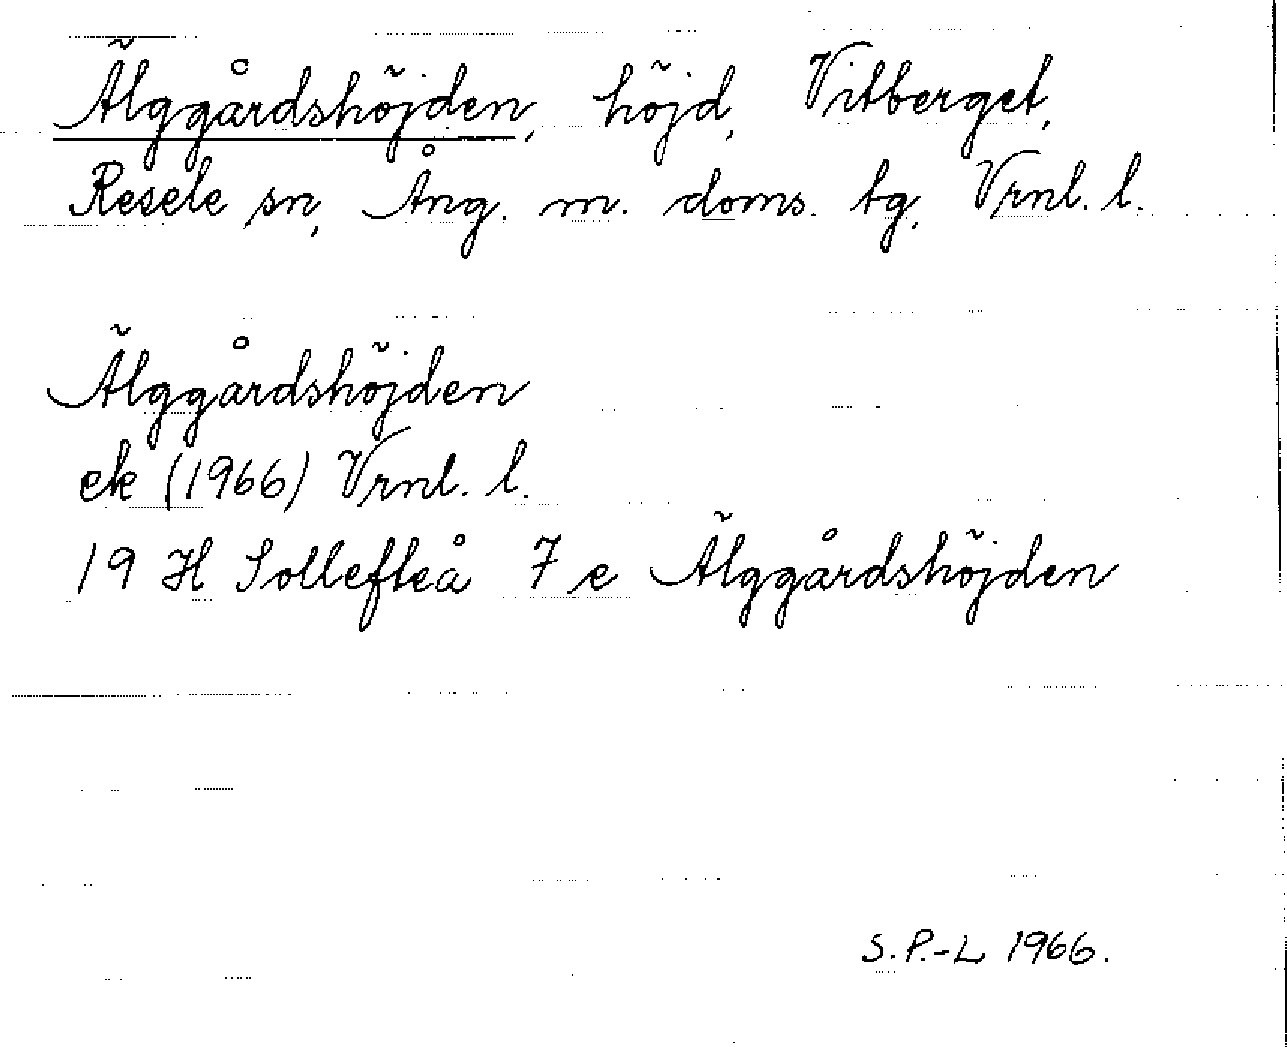 Älggårdshöjden, höjd, Vitberget,
Resele sn, Ång. m. doms. tg, Vrnl. l.
Älggårdshöjden
ek (1966) Vrnl. l.
19 H Sollefteå 7 e Älggårdshöjden
S. P.-L 1966.